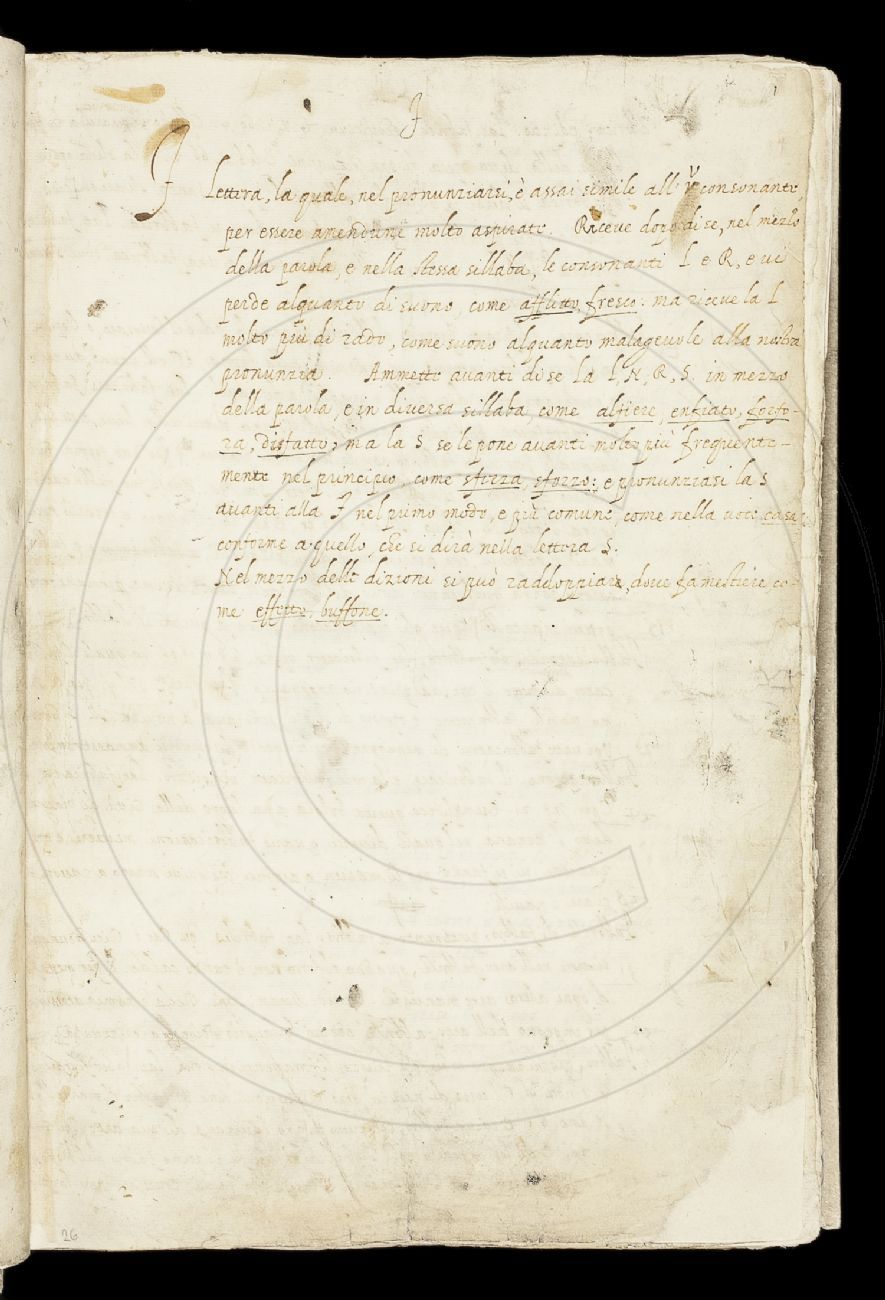 F
F Lettera, la quale, nel pronunziarsi, è assai simile all' V consonante,
per essere amendune molto aspirate. Riceve dopo di se, nel mezzo
della parola, e nella stessa sillaba, le consonanti L e R, e vi
perde alquanto di suono, come afflitto, fresco: ma riceve la L
molto più di rado, come suono alquanto malagevole alla nostra
pronunzia. Ammette avanti di se la L, N, R, S. in mezzo
della parola, e in diversa sillaba, come alfiere, enfiato, forfo-
ra, disfatto; ma la S se le pone avanti molto più frequente-
mente nel principio, come sferza, sforzo: e pronunziasi la S
avanti alla F nel primo modo, e più comune, come nella voce casa,
conforme a quello, che si dirà nella lettera S.
Nel mezzo delle dizioni si può raddoppiare, dove fa mestiere co-
me effetto, buffone.
26